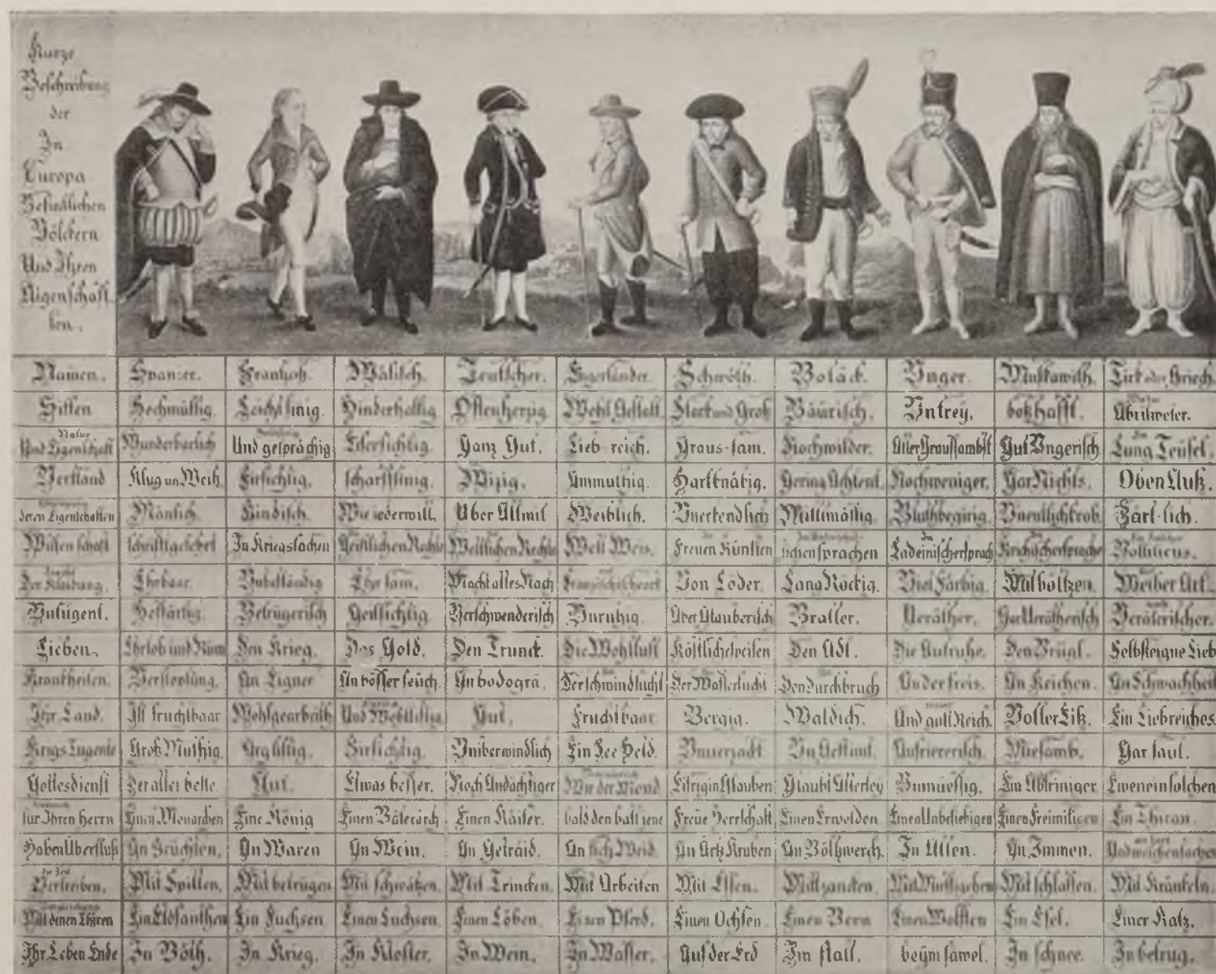 Kurze
Beschreibung
der
In
Europa
Befindlichen
Völckern
Und Ihren
Aigenschaff
ten.
Namen. Spanier. Frantzoß. Wälisch. Teutscher. Engerländer. Schwöth. Boläck. Unger. Muskawith. Tirk oder Griech.
Sitten Hochmüttig. Leichtsinig. Hinderhaltig Offenherzig Wohl Gestalt. Starck und Groß Bäurisch. Untrey. boßhafft. Abrilweter.
Natur Und Eigenschaft Wunderbarlich Und gesprächig Eifersichtig. Ganz Gut. Lieb-reich. Graus-sam. Nochwilder. Aller Graussambst Gut Ungerisch Lung Teufel.
Verstand Klug un Weiß. Firsichtig. scharffsinig. Wizig. Ammuthig. Hartknätig. Gering Achtent Nochweniger. Gar Nichts. Oben Auß.
deren Eigenschaften Mänlich. Kindisch. Wie iederwill Über Allmit Weiblich. Unerkendlich Mittlmässig. Bluthbegirig. Unentlichkrob Zärt-lich.
Wissenschaft schrifftgelehrt In Kriegssachen Geistlichen Rechte Weltlichen Rechte Welt Weis. Freuen Künsten ischensprachen Ladeinischersprach Krichischersprache Bolliticus.
Der Klaidung. Ehrbaar. Unbeständig Ehrsam. Macht alles Nach Französischeart Von Löder. Lang Röckig. Viel Färbig. Mit böltzen. Weiber Art.
Untugent. Hoffärtig. Betrügerisch Geillsichtig. Verschwenderisch Unruhig. Über Glauberisch Braller. Veräther. Gar Verätherisch Verätrischer.
Lieben. Ehrlob und Rum Den Krieg. Das Gold. Den Trunck. Die Wohllust Köstlichespeisen Den Adl. Die Aufruhe. Den Brügl. Selbsteigne Lieb
Krankheiten. Verstopfung. An Eigner An böser seüch. An bodogrä. Der schwindsucht Der Wassersucht Den Durchbruch An der freis. An Keichen. An Schwachheit
Ihr Land. Ist fruchtbaar Wohlgearbeith Und Wohllistig Gut. Fruchtbaar Bergig. Waldich. Und goltReich. Voller Eiß. Ein Liebreiches
Krigs Tugente Groß Muthig. Arglistig. Firsichtig. Uniberwindlich Ein See Held. Unverzadt Un Gestimt. Aufriererisch. Miesamb. Gar faul.
Gottesdienst Der aller beste Gut. Etwas besser. Noch Andächtiger Wie der Mond Eifrig in Glauben Glaubt Allerley Unmüessig. Ein Abtriniger Eweneinsolchen
für Ihren Herrn Einen Monarchen Eine König Einen Bäterarch Einen Käiser. bald den balt jene Freüe Herrschaft Einen Erwelden Einen Unbeliebigen Einen Freimiligen Ein Thiran.
Haben Überfluß An Früchten. An Waren An Wein. An Getraid. An fich Weid An Ärtz Kruben An Böltzwerch. In Allen. An Immen.
Vertreiben. Mit Spillen. Mit betrügen Mit schwätzen. Mit Trincken. Mit Arbeiten Mit Essen. Mit zancken. Mit Müessigehen Mit schlaffen. Mit Kränkeln.
Mit denen Thiren Ein Elöfanthen Ein Fuchsen. Einen Luchsen. Einen Löben. Einen Pferd. Einen Ochsen. Einen Bern Einen Wolffen Ein Esel. Einer Katz.
Ihr Leben Ende In Böth. In Krieg. In Kloster. In Wein. In Wasser. Auf der Erd Im stall. beÿm sawel. In schnee. In betrug.